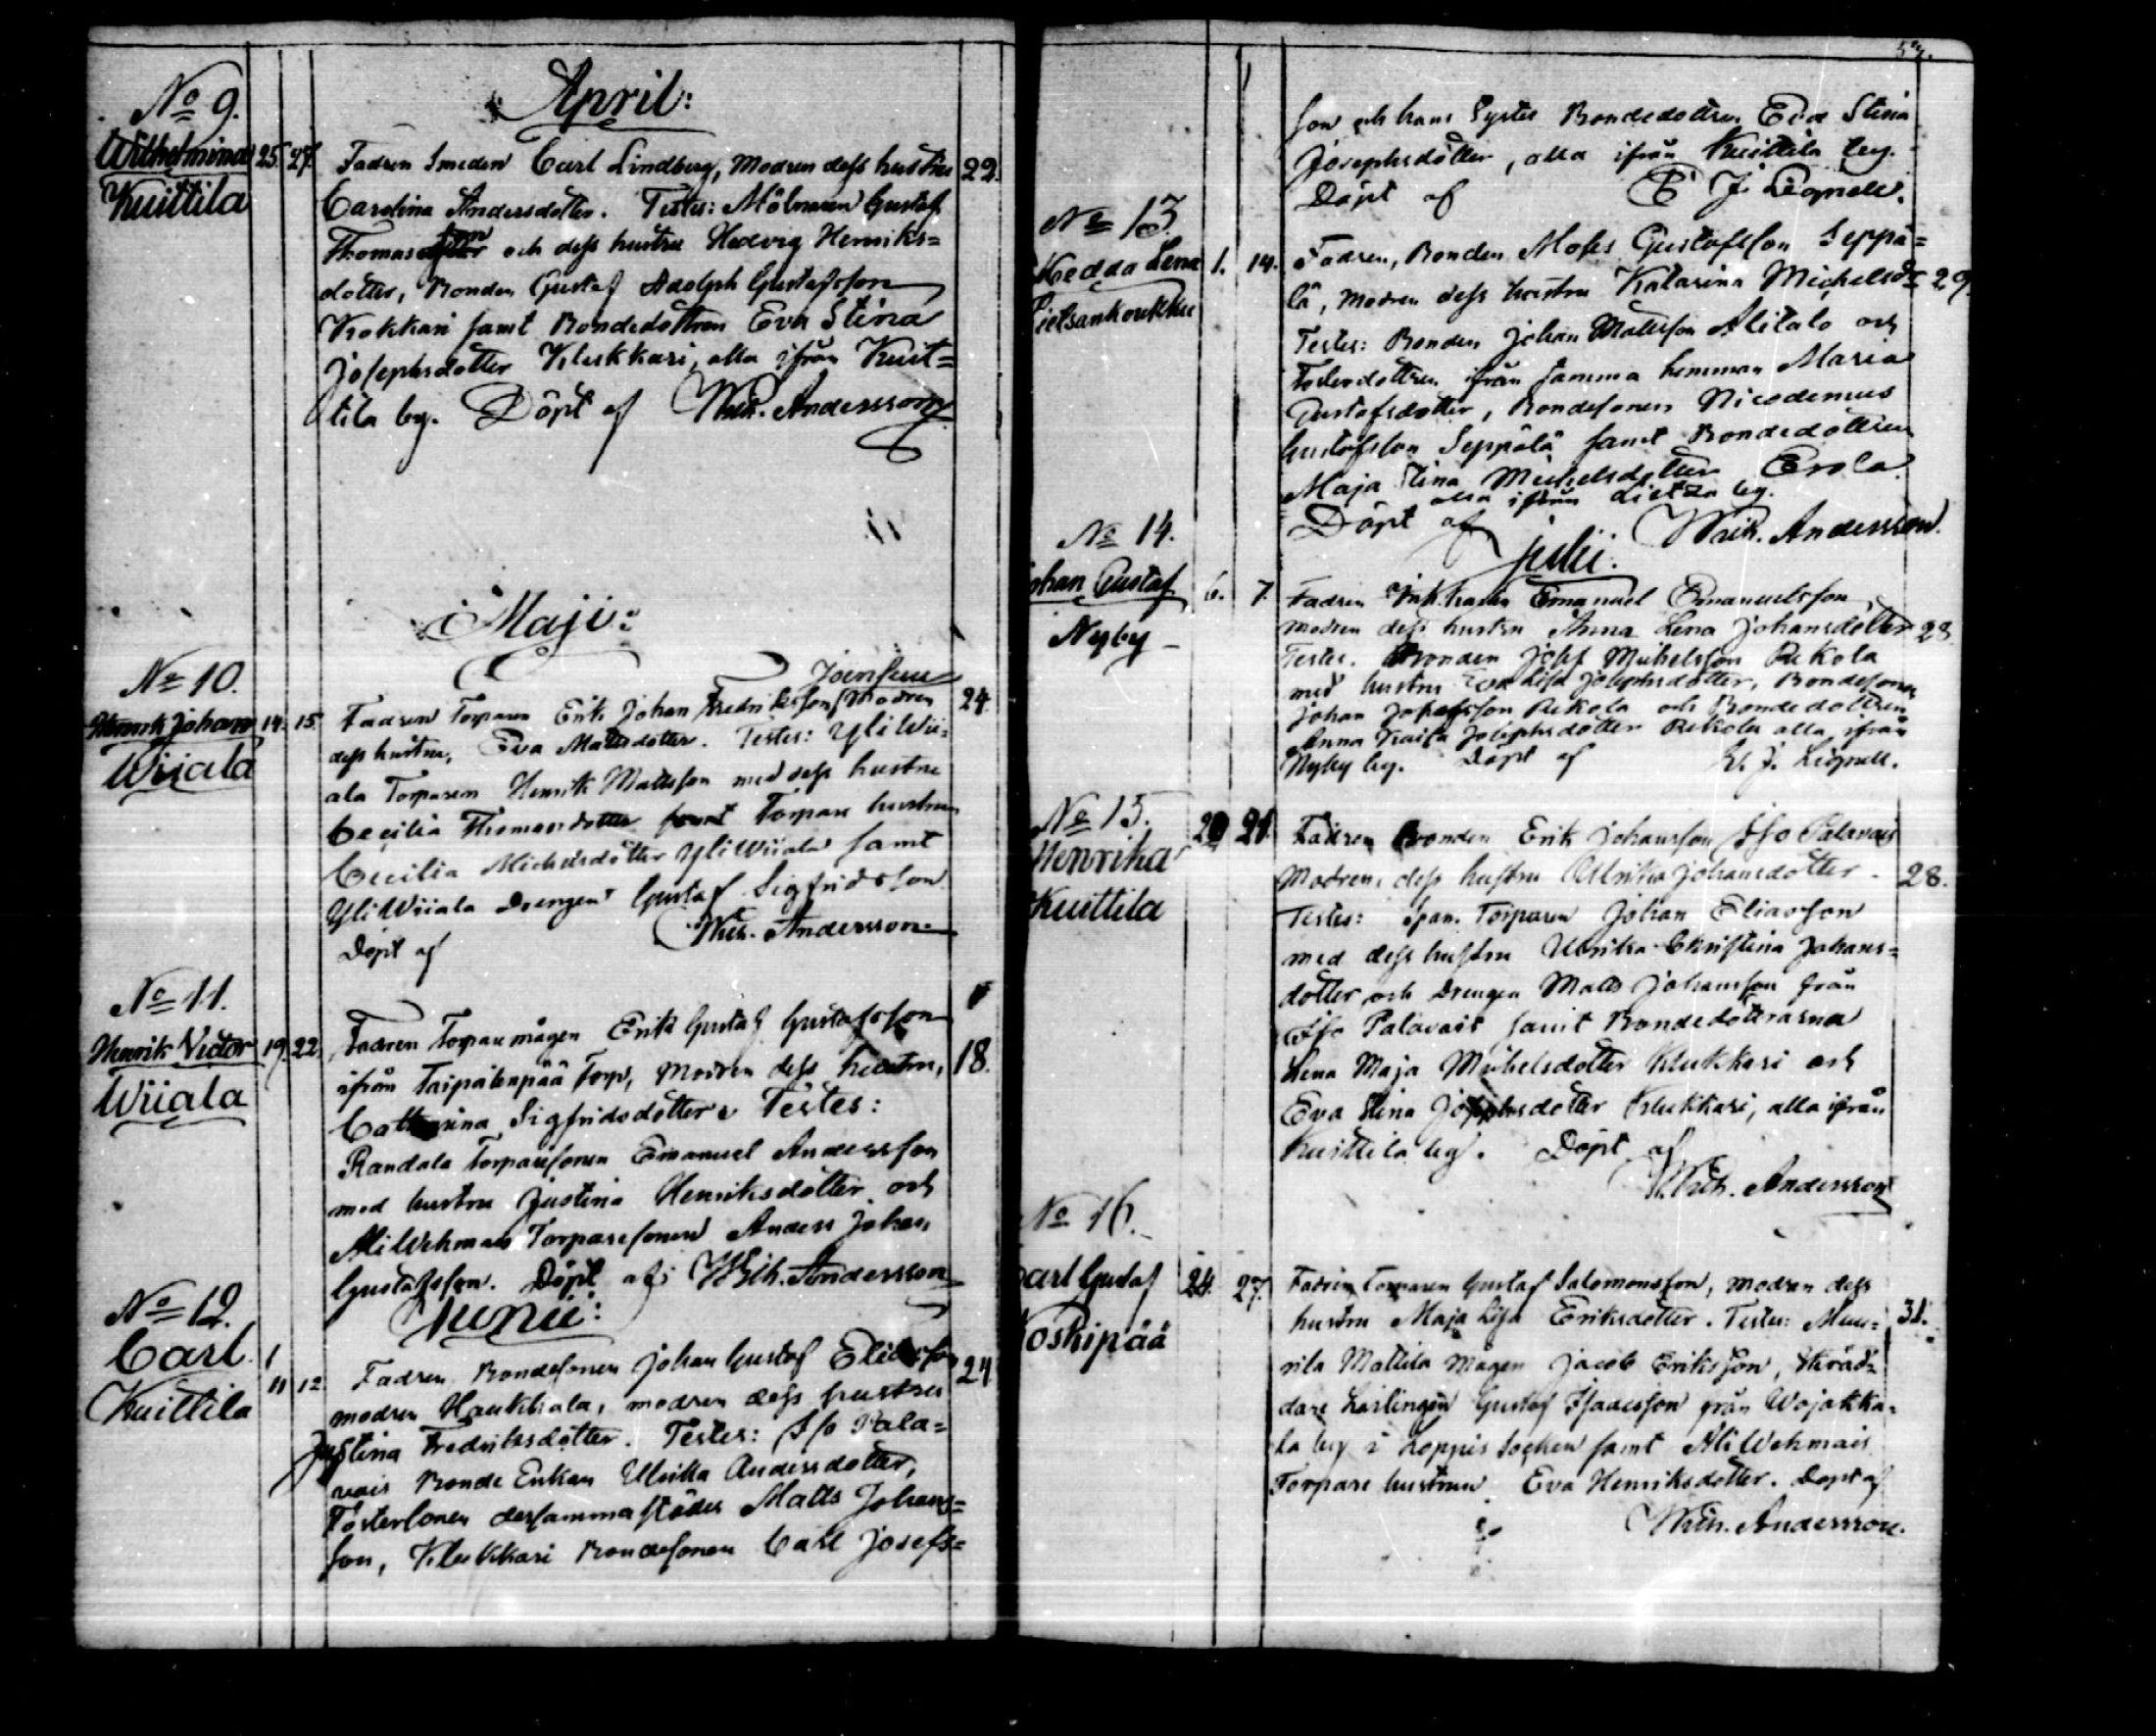 April:
No 9.
Wilhelmina 25. 27. Fadren Smeden Carl Lindberg, Modren dess hustru 22.
Kuittila Carolina Andersdotter. Testes: Mölnaren Gustaf
Thomasson och dess hustru Hedvig Henriks=
dotter, Bonden Gustaf Adolph Gustafsson
Krokkari samt Bondedottren Eva Stina
Josephsdotter Klukkari, alla ifrån Kuit=
tila by. Döpt af Wilh. Andersson
Maji:
No 10. Joensuu
Henrik Johan 14. 15. Fadren Torparen Erik Johan Fredriksson Modren 24.
Wiiala dess hustru, Eva Mattsdotter. Testes: Yli Wii=
ala Torparen Henrik Mattsson med dess hustru
Cecilia Thomasdotter samt Torpare hustrun
Cecilia Michelsdotter Yli Wiiala samt
Yli Wiiala Drengen Gustaf Sigfridsson
Döpt af Wilh. Andersson
No 11.
Henrik Victor 19. 22. Fadren Torpare mågen Erik Gustaf Gustafsson
Wiiala ifrån Taipalenpää Torp, Modren dess hustru, 18.
Catharina Sigfridsdotter. Testes:
Randala Torparesonen Emanuel Andersson
med hustru Justina Henriksdotter och
Ali Wehmais Torparesonen Anders Johan
Gustafsson. Döpt af: Wilh. Andersson
Junii:
No 12.
Carl 11 12 Fadren Bondesonen Johan Gustaf Eliasson 24
Kuittila modren Haukkala, modren dess hustru
Justina Fredriksdotter. Testes: Iso Pala=
vais Bonde Enkan Ulrika Andersdotter,
Fostersonen dersammastädes Matts Johans=
son, Klukkari Bondesonen Carl Josefs=
57.
son och hans Syster Bondedottren Eva Stina
Josephsdotter, alla ifrån Kuittila by.
Döpt af J. Lignell.
No 13.
Hedda Lena 1. 14. Fadren, Bonden Moses Gustafsson Seppä=
Lietsankoukku lä, modren dess hustru Katarina Michelsd= 29.
Testes: Bonden Johan Mattsson Alitalo och
Fosterdottren ifrån samma hemman Maria
Gustafsdotter, Bondesonen Nicodemus
Gustafsson Seppälä samt Bondedottren
Maja Stina Michelsdotter Erola
alla ifrån Lietza by.
Döpt af Wilh. Andersson.
Julii.
No 14.
Johan Gustaf 6. 7. Fadren Emanuel Emanuelsson,
Nyby modren dess hustru Anna Lena Johansdotter 28
Testes. Bonden Josef Michelsson Rekola
med hustru Eva Lisa Josephsdotter, Bondesonen
Johan Josefsson Rekola och Bondedottren
Anna Kaisa Josephsdotter Rekola alla ifrån
Nyby by. Döpt af J. Lignell.
No 15.
Henrika 20 21. Fadren Bonden Erik Johansson Iso Palavais
Kuittila Modren, dess hustru Ulrika Johansdotter. 28.
Testes: Torparen Johan Eliasson
med dess hustru Ulrika Christina Johans=
dotter och Drengen Matts Johansson från
Iso Palavais samt Bondedöttrarna
Lena Maja Michelsdotter Klukkari och
Eva Stina Josephsdotter Klukkari, alla ifrån
Kuittila by. Döpt af
Wilh. Andersson
No 16.
Carl Gustaf 24. 27. Fadren Torparen Gustaf Salomonsson, modren dess
Koskipää hustru Maja Lisa Eriksdotter. Testes: Muu= 31.
rila Mattila Mågen Jacob Eriksson, Skräd=
dare Lärlingen Gustaf Isacsson från Wojakka=
la by i Loppis Socken samt Ali Wehmais
Torpare hustrun Eva Henriksdotter. Döpt af
Wilh. Andersson.